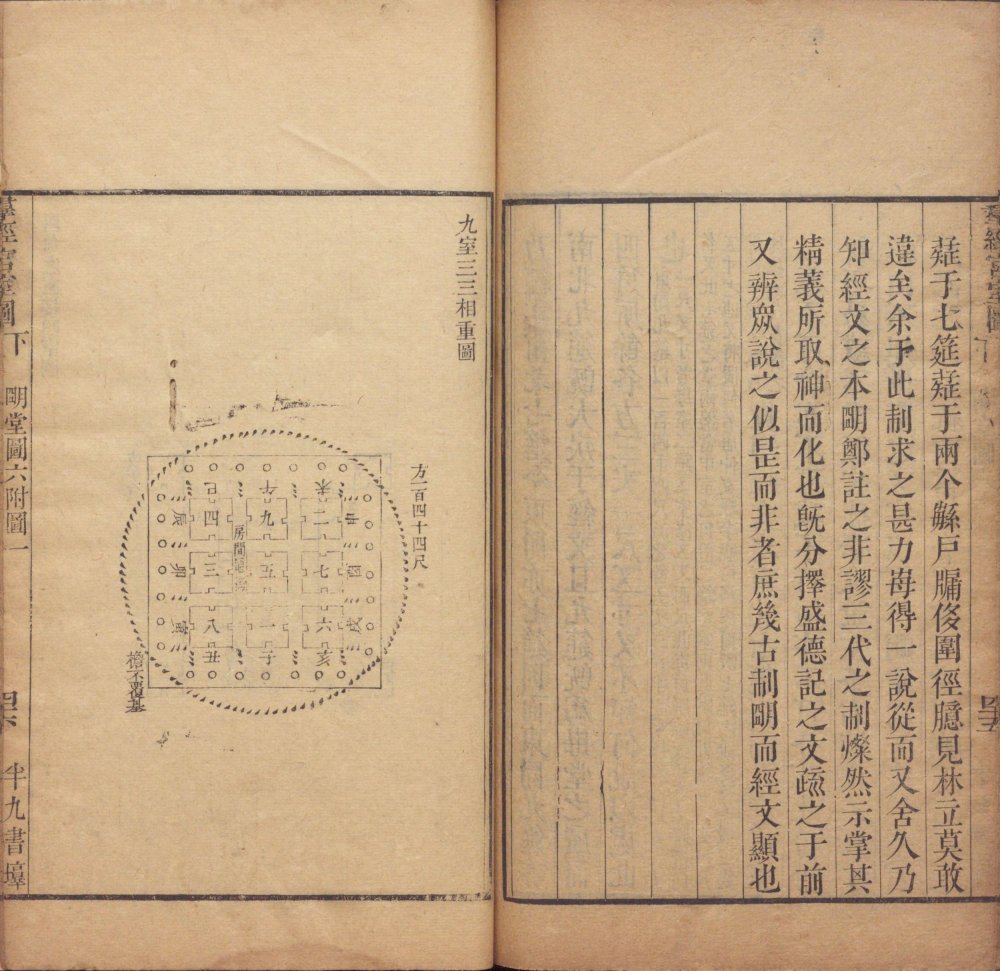 羣經宮室圖
四十五
薿于七筵薿于兩个繇戶牖侈圍徑臆見林立莫敢
違矣余于此制求之甚力每得一說從而又舍久乃
知經文之本明鄭註之非謬三代之制燦然示掌其
精義所取神而化也旣分擇盛德記之文疏之于前
又辨眾說之似是而非者庶幾古制明而經文顯也
九室三三相重圖
方一百四十四尺
未 午 巳
申 二 九 四 辰
房間
酉 七 五 三 卯
戌 六 一 八 寅
亥 子 丑
檐不覆基
羣經宮室圖 下 明堂圖六附圖一
四十六 半九書塾